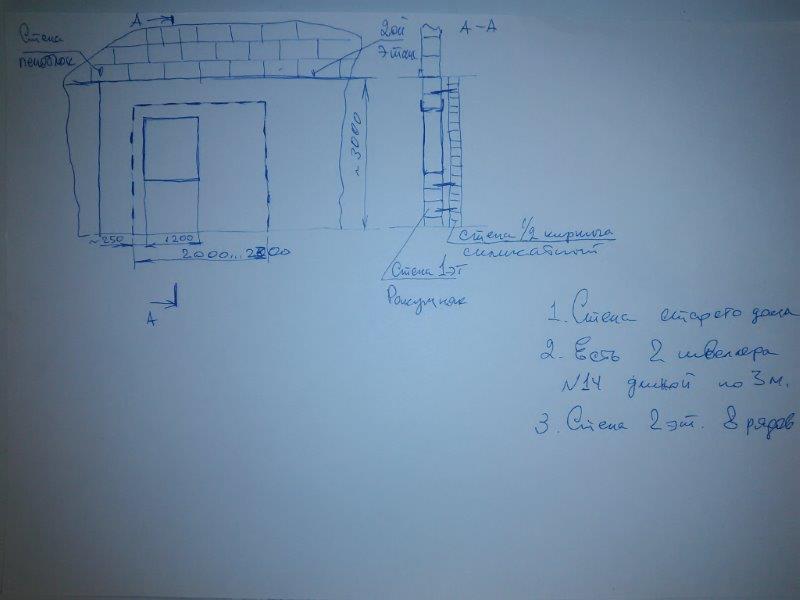 А
А - А
Стена
пеноблок
2ой
этаж
~ 3000
~250
1200
2000...2300
стена 1/2 кирпича
силикатный
Стена 1-эт
Ракушняк
А
1. Стена старого дома
2. Есть 2 швеллера
N14 длиной по 3 м.
3. Стена 2 эт. 8 рядов